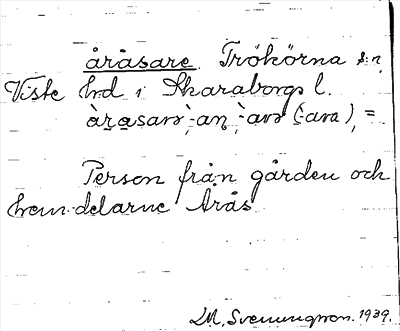 åråsare. Trökörna s:n
Viste hd i Skaraborgs l.
àrasarə, -an, -arə (-ara), =
Person från gården och
hemdelarne Arås
M. Svenungsson. 1939.